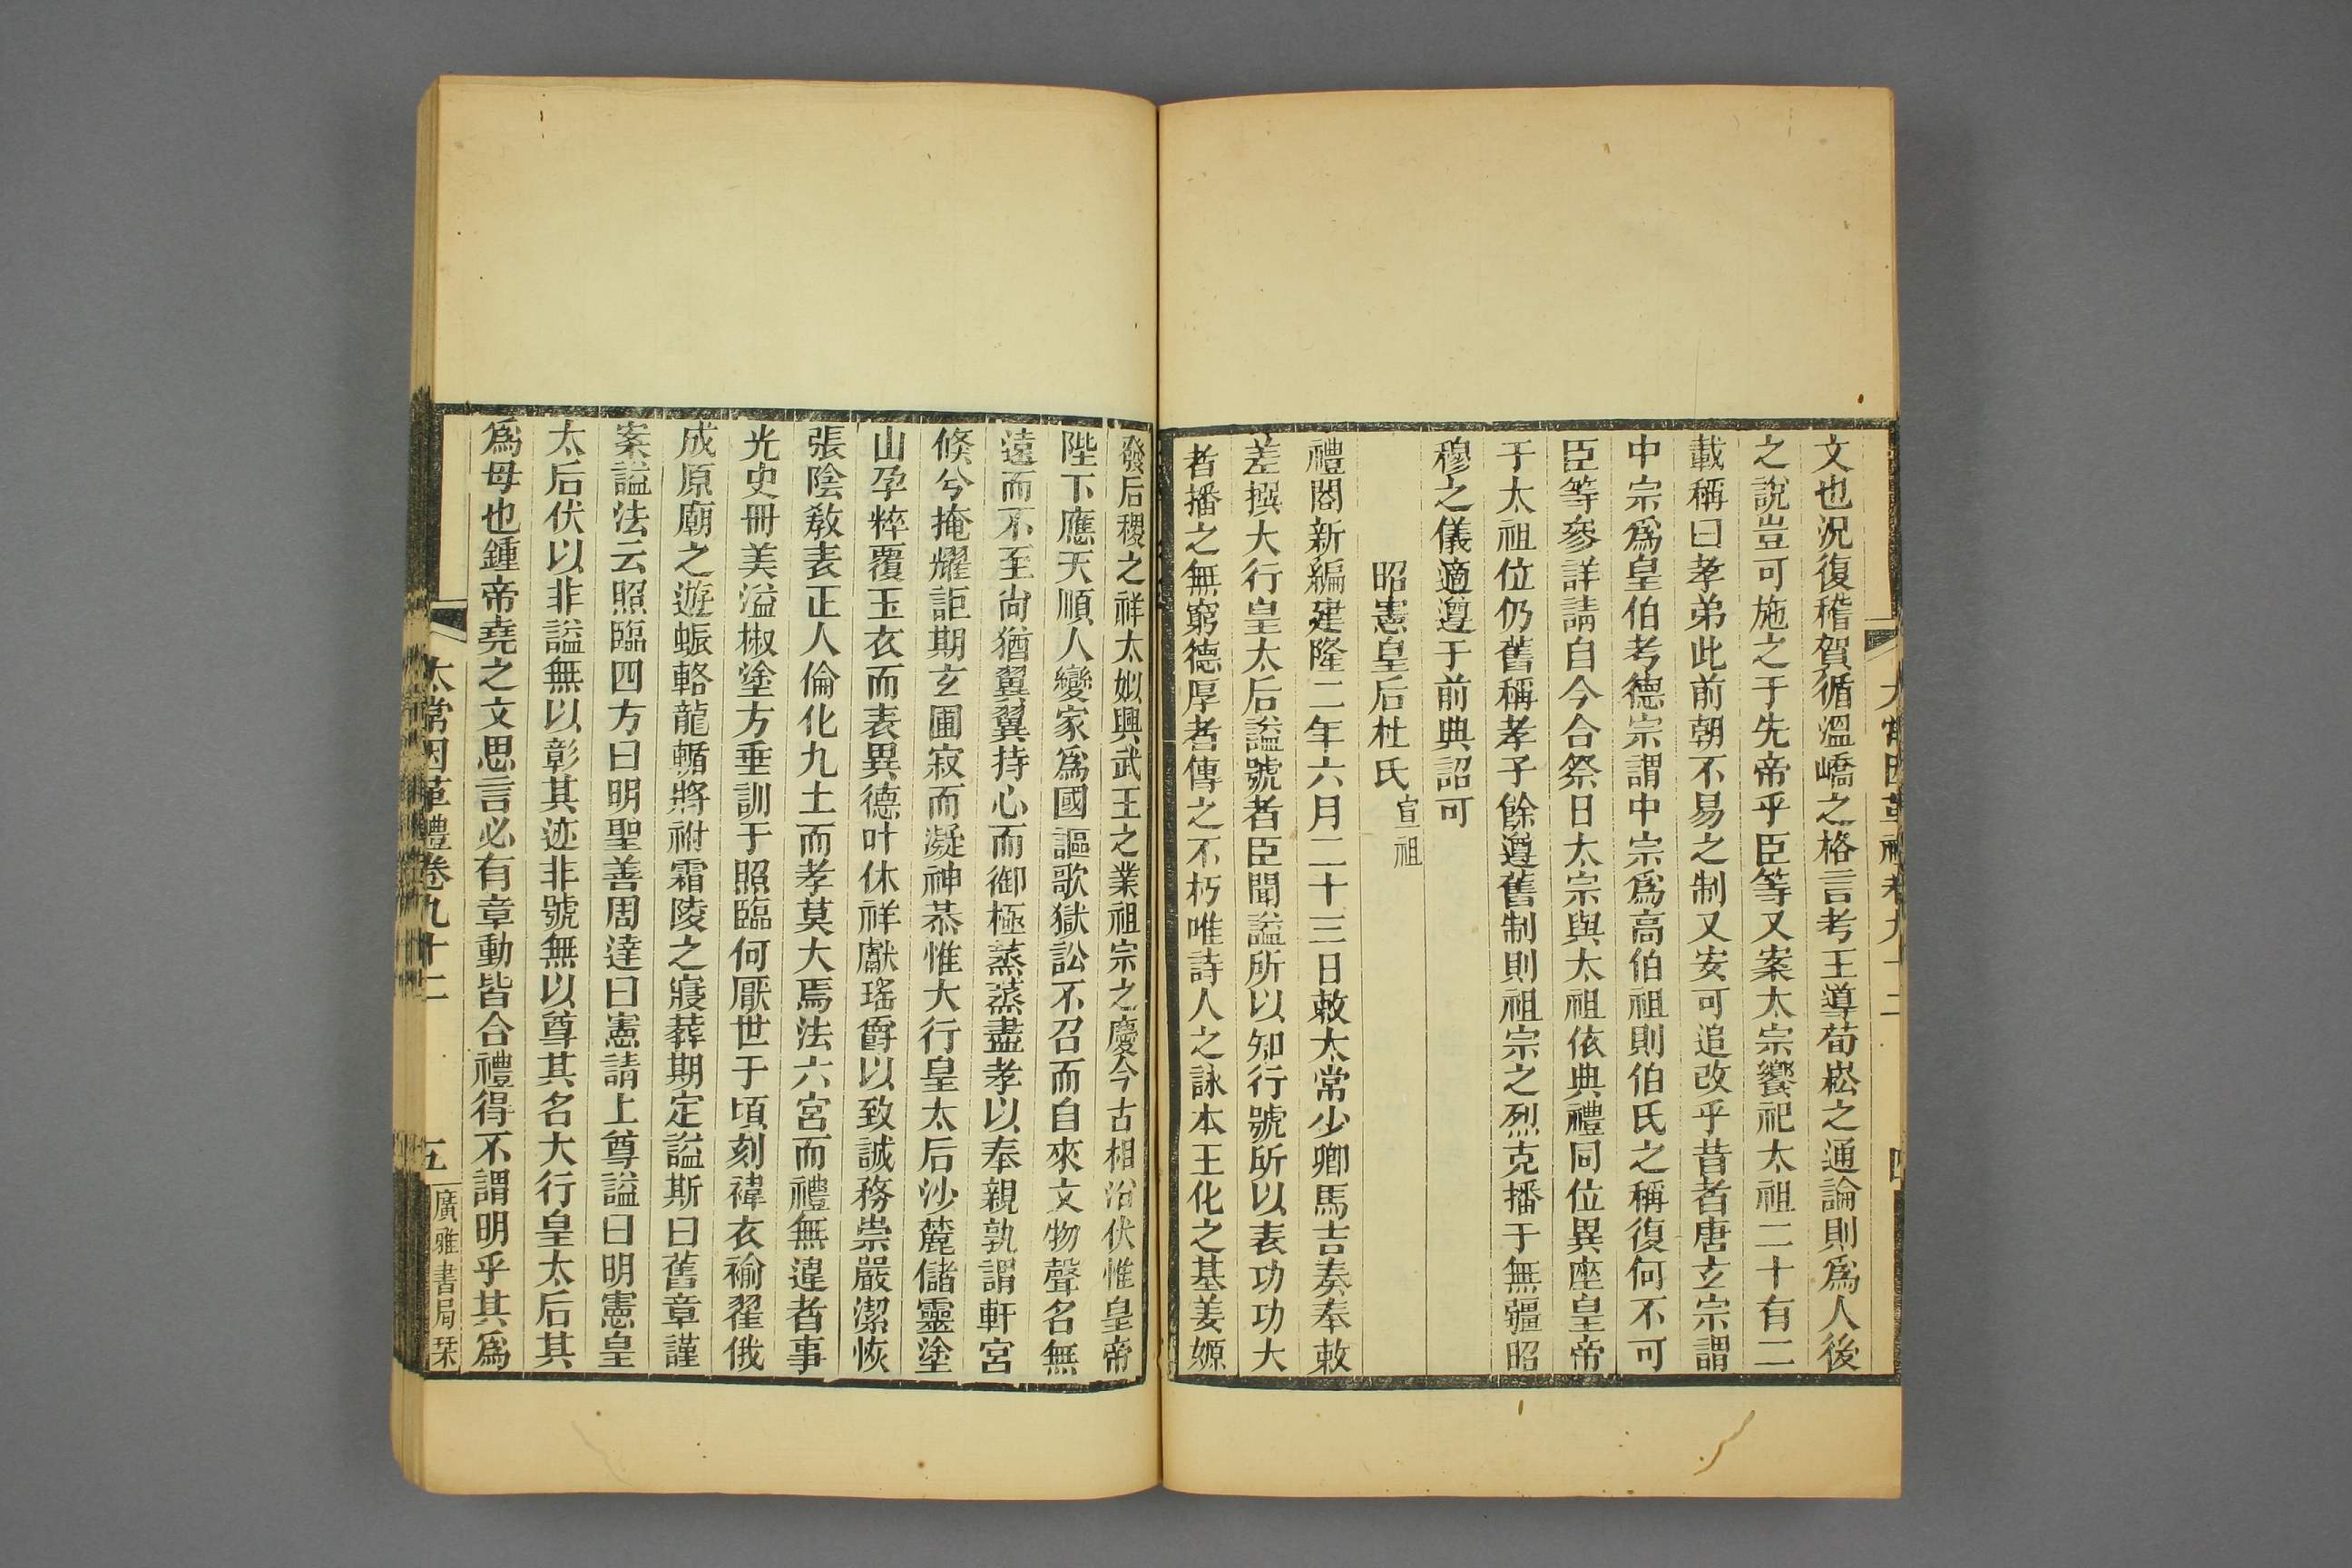 太常因革禮卷九十二
四
文也況復稽賀循溫嶠之格言考王導荀崧之通論則爲人後
之說豈可施之于先帝乎臣等又案太宗饗祀太祖二十有二
載稱曰孝弟此前朝不易之制又安可追改乎昔者唐玄宗謂
中宗爲皇伯考德宗謂中宗爲高伯祖則伯氏之稱復何不可
臣等參詳請自今合祭日太宗與太祖依典禮同位異座皇帝
于太祖位仍舊稱孝子餘遵舊制則祖宗之烈克播于無疆昭
穆之儀適遵于前典詔可
昭憲皇后杜氏宣祖
禮閣新編建隆二年六月二十三日敕太常少卿馬吉奏奉敕
差撰大行皇太后諡號者臣聞諡所以知行號所以表功功大
者播之無窮德厚者傳之不朽唯詩人之詠本王化之基姜嫄
發后稷之祥太姒興武王之業祖宗之慶今古相沿伏惟皇帝
陛下應天順人變家爲國謳歌獄訟不召而自來文物聲名無
遠而不至尙猶翼翼持心而御極蒸蒸盡孝以奉親孰謂軒宮
倏兮掩耀詎期玄圃寂而凝神恭惟大行皇太后沙麓儲靈塗
山孕粹覆玉衣而表異德叶休祥獻瑤爵以致誠務崇嚴潔恢
張陰敎表正人倫化九土而孝莫大焉法六宮而禮無違者事
光史冊美溢椒塗方垂訓于照臨何厭世于頃刻褘衣褕翟俄
成原廟之遊蜃輅龍輴將祔霜陵之寢葬期定諡斯曰舊章謹
案諡法云照臨四方曰明聖善周達曰憲請上尊諡曰明憲皇
太后伏以非諡無以彰其迹非號無以尊其名大行皇太后其
爲母也鍾帝堯之文思言必有章動皆合禮得不謂明乎其爲
太常因革禮卷九十二
五
廣雅書局栞